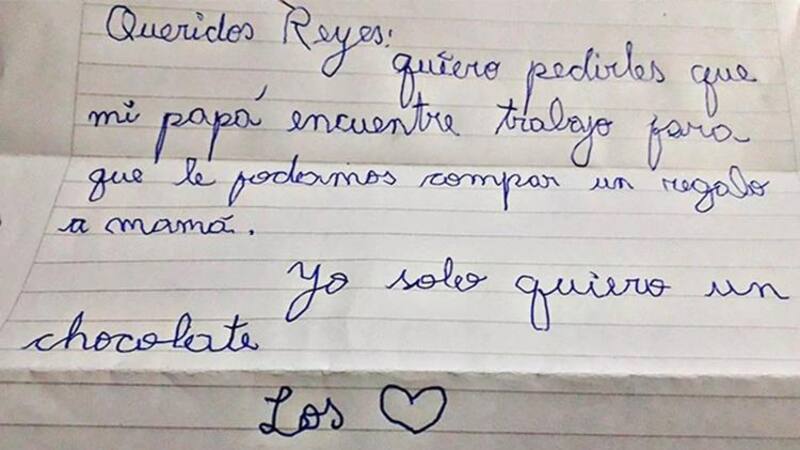 Queridos Reyes:
quiero pedirles que
mi papá encuentre trabajo para
que le podamos compar un regalo
a mamá.
Yo solo quiero un
chocolate
Los ♡